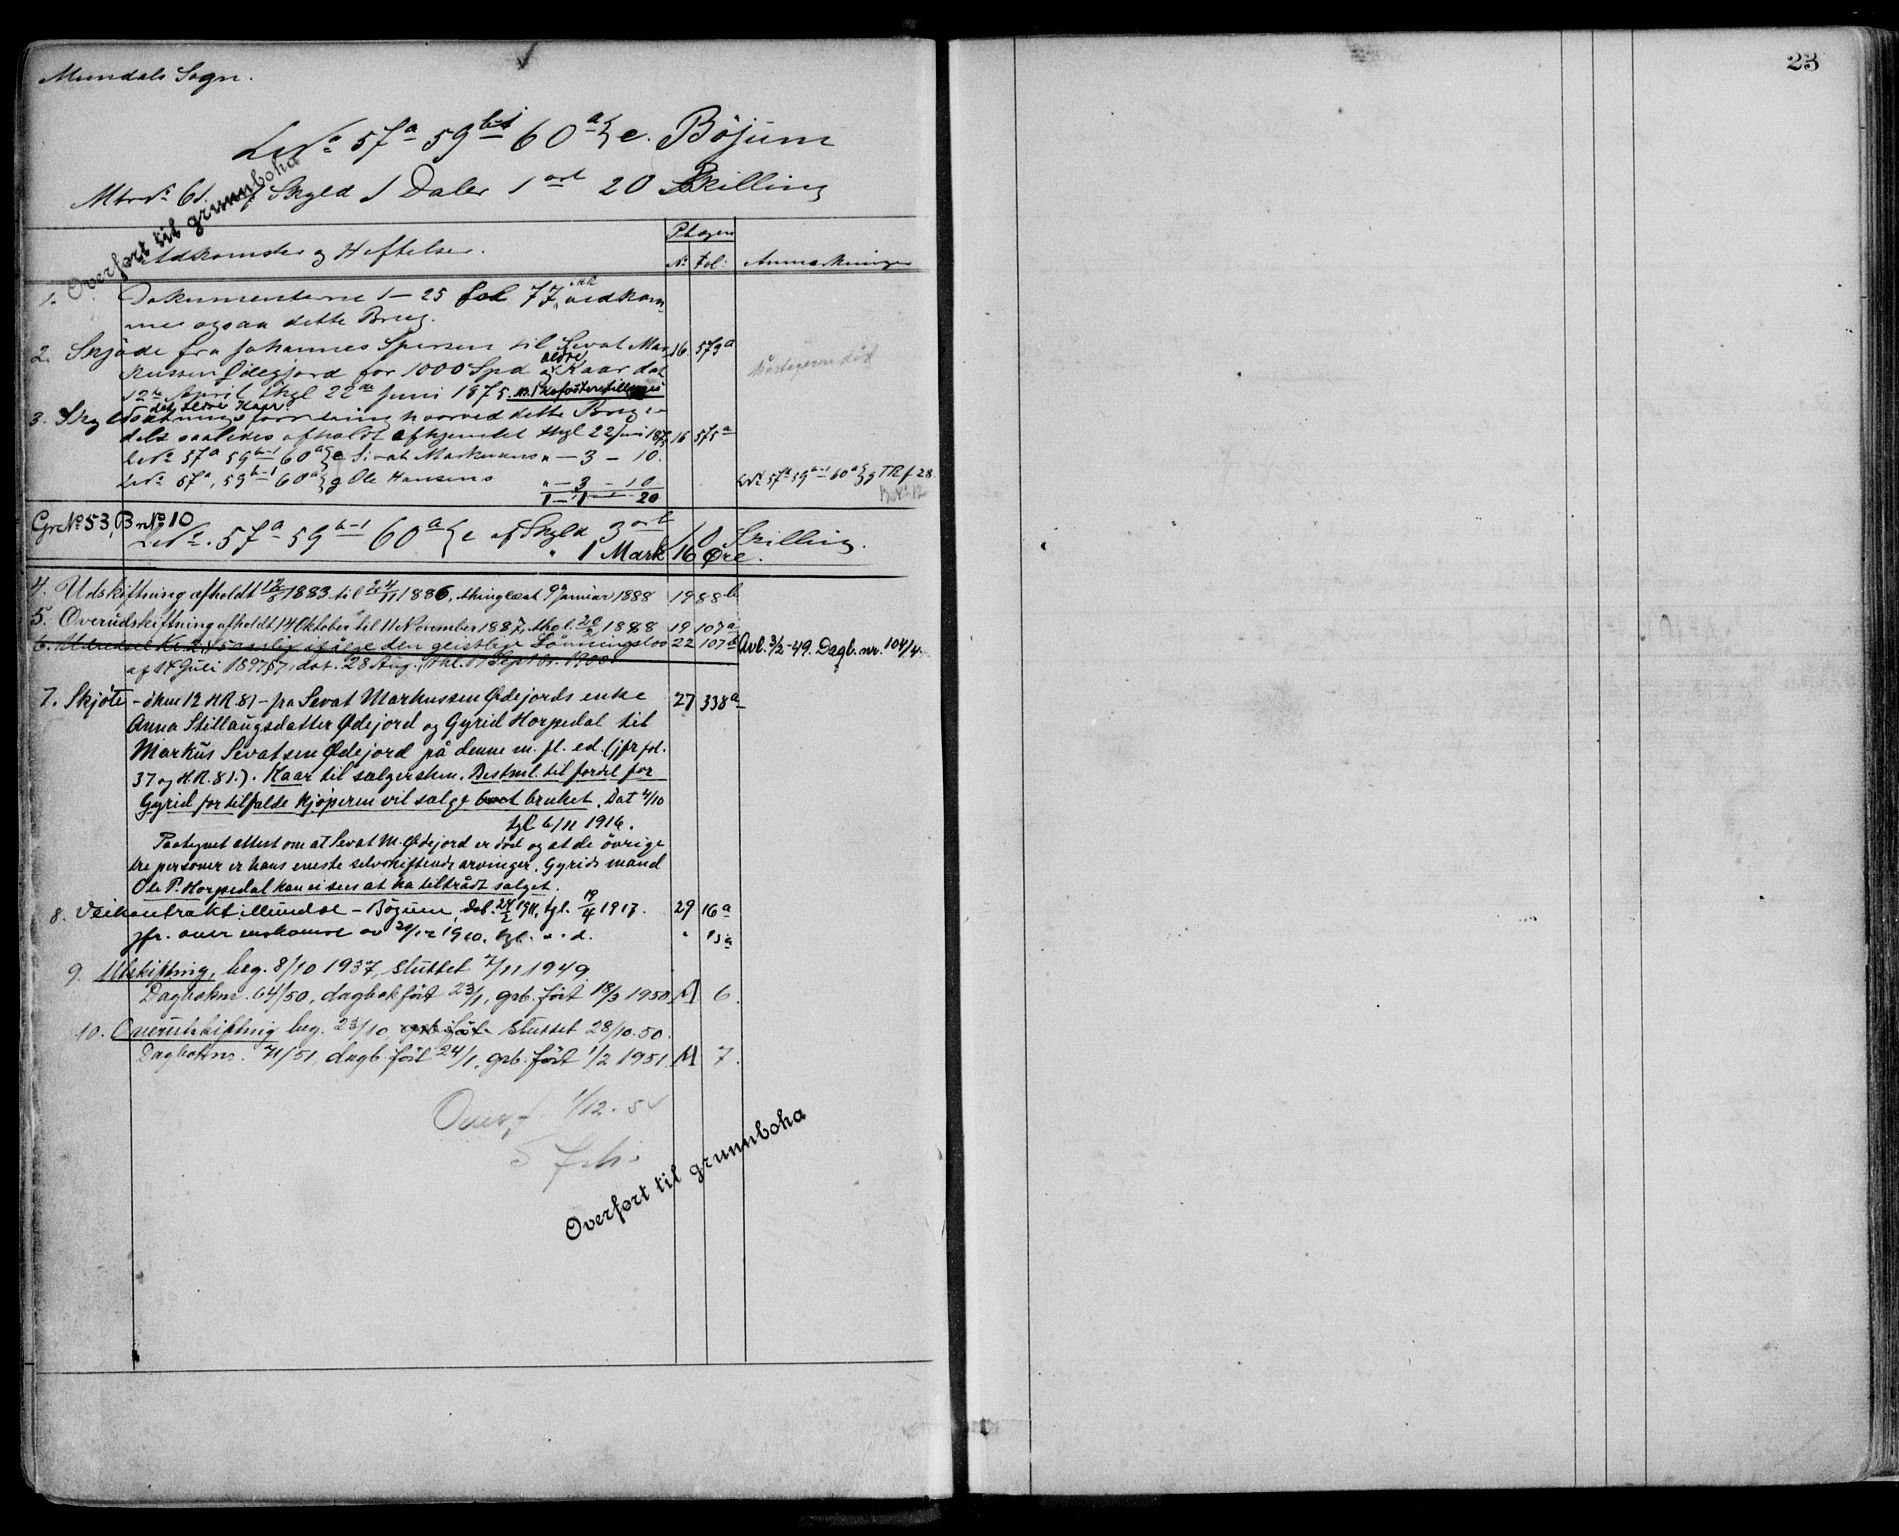 23
Mundals Sogn.
LNo 57a 59b-1 60a}e. Böjum
MtrNo 61. af Skyld 1 Daler 1 ort 20 Skilling
Overført til grunnboka
Adkomster og Heftelser.
Pbogen
No Fol: Anmærkninger
1. Dokumenterne 1–25 fol 77, vedkom-
mer ogsaa dette Brug.
2. Skjöde fra Johannes til Sevat Mar- 16 573a
kussen Ödegjord for 1000 Spd og Kaar dat
April thgl 22de Juni 1875.
det ældre Kaar.
3. forretning hvorved dette Brug
delt saaledes afholdt thgl 22 Juni 1875 16 575a
LNo 57a 59b-1 60a}e Sivat Markusens " – 3 – 10.
LNo 57a, 59b-1 60a}g Ole Hansens " – 3 – 10 LNo 57a 59b-1 60a}g TR f 28
1 – 1 – 20 BNo 12
Gr No 53, Br No 10
LNo. 57a 59b-1 60a}e af Skyld 3 ort 10 Skilling.
" 1 Mark 16 Øre.
4. Udskiftning afholdt 1883 til 24/11 1886, thinglæst 9 Januar 1888 19 88b
5. Overudskiftning afholdt 14 Oktober til 11 November 1887, thgl. 20/2 1888 19 107a
6. den geistlige Lönningslov 22 107b Avl. 3/2-49. Dagb. nr. 104/4.
af 14 Juli 1897 § 7, dat. 28 Aug., thl. 17 Septbr. 1900.
7. Skjöte – 12 H.R. 81 – fra Sevat Markussen Ødejords enke 27 338a
Anna Stillaugsdatter Ødejord og Gyrid Horpedal til
Markus Sevatsen Ødejord på denne m. fl. ed. (jfr fol.
37 og H.R. 81.). Kaar til sælgersken. Bestml. til fordel for
Gyrid for tilfælde kjöperen vil sælge bort bruket. Dat 4/10
tgl 6/11 1916.
Paategnet attest om at Sevat M. Ødejord er död og at de övrige
tre personer er hans eneste selvskiftende arvinger. Gyrids mand
Ole P. Horpedal kan ei sees at ha tiltrådt salget.
8. Veikontrakt Mundal – Böjum, dat. 24/2 1911, tgl. 19/4 1917. 29 16a
jfr. overenskomst av 1910, tgl. s. d.
9. Utskiftning, beg. 8/10 1937, sluttet 7/11 1949
Dagboknr. 64/50, dagbokfört 23/1, grb. fört 18/3 1950. M 6.
10. Overutskiftning beg. 23/10 sluttet 28/10.50.
Dagboknr. 71/51, dagb. fört 24/1, grb. fört 1/2 1951. M 7.
Overf. 1/12-54
Overført til grunnboka